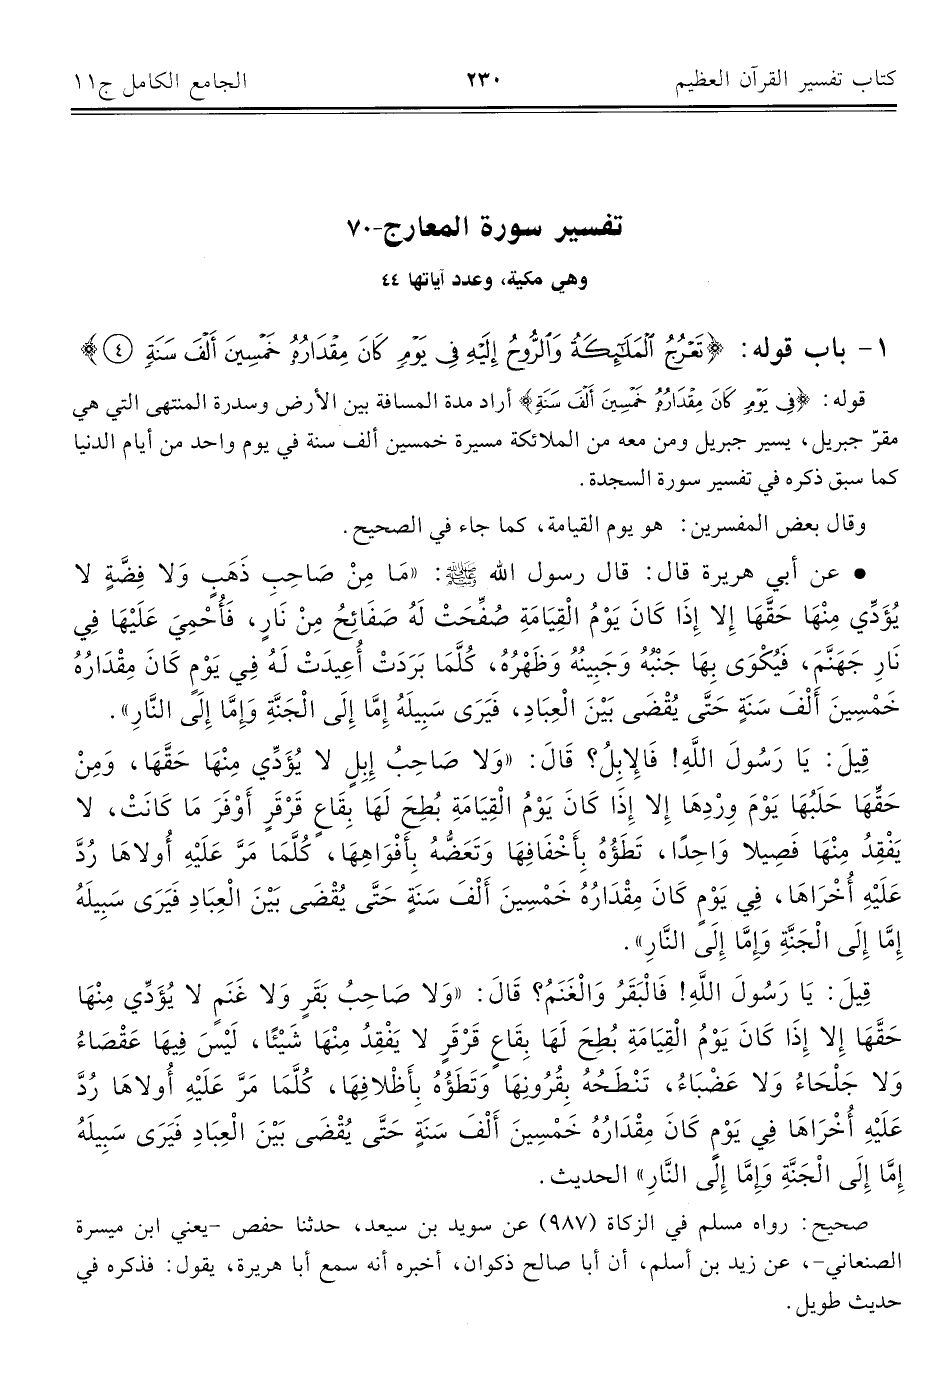 كتاب تفسير القرآن العظيم ٢٣٠ الجامع الكامل ج١١
تفسير سورة المعارج-٧٠
وهي مكية، وعدد آياتها ٤٤
١- باب قوله: ﴿تَعْرُجُ الْمَلَٰٓئِكَةُ وَالرُّوحُ إِلَيْهِ فِي يَوْمٍ كَانَ مِقْدَارُهُ خَمْسِينَ أَلْفَ سَنَةٍ ٤﴾
قوله: ﴿فِي يَوْمٍ كَانَ مِقْدَارُهُ خَمْسِينَ أَلْفَ سَنَةٍ﴾ أراد مدة المسافة بين الأرض وسدرة المنتهى التي هي
مقرّ جبريل، يسير جبريل ومن معه من الملائكة مسيرة خمسين ألف سنة في يوم واحد من أيام الدنيا
كما سبق ذكره في تفسير سورة السجدة.
وقال بعض المفسرين: هو يوم القيامة، كما جاء في الصحيح.
• عن أبي هريرة قال: قال رسول الله ﷺ: «مَا مِنْ صَاحِبِ ذَهَبٍ وَلا فِضَّةٍ لا
يُؤَدِّي مِنْهَا حَقَّهَا إِلا إِذَا كَانَ يَوْمُ الْقِيَامَةِ صُفِّحَتْ لَهُ صَفَائِحُ مِنْ نَارٍ، فَأُحْمِيَ عَلَيْهَا فِي
نَارِ جَهَنَّمَ، فَيُكْوَى بِهَا جَنْبُهُ وَجَبِينُهُ وَظَهْرُهُ، كُلَّمَا بَرَدَتْ أُعِيدَتْ لَهُ فِي يَوْمٍ كَانَ مِقْدَارُهُ
خَمْسِينَ أَلْفَ سَنَةٍ حَتَّى يُقْضَى بَيْنَ الْعِبَادِ، فَيَرَى سَبِيلَهُ إِمَّا إِلَى الْجَنَّةِ وَإِمَّا إِلَى النَّارِ».
قِيلَ: يَا رَسُولَ اللَّهِ! فَالإِبِلُ؟ قَالَ: «وَلا صَاحِبُ إِبِلٍ لا يُؤَدِّي مِنْهَا حَقَّهَا، وَمِنْ
حَقِّهَا حَلَبُهَا يَوْمَ وِرْدِهَا إِلا إِذَا كَانَ يَوْمُ الْقِيَامَةِ بُطِحَ لَهَا بِقَاعٍ قَرْقَرٍ أَوْفَرَ مَا كَانَتْ، لا
يَفْقِدُ مِنْهَا فَصِيلا وَاحِدًا، تَطَؤُهُ بِأَخْفَافِهَا وَتَعَضُّهُ بِأَفْوَاهِهَا، كُلَّمَا مَرَّ عَلَيْهِ أُولاهَا رُدَّ
عَلَيْهِ أُخْرَاهَا، فِي يَوْمٍ كَانَ مِقْدَارُهُ خَمْسِينَ أَلْفَ سَنَةٍ حَتَّى يُقْضَى بَيْنَ الْعِبَادِ فَيَرَى سَبِيلَهُ
إِمَّا إِلَى الْجَنَّةِ وَإِمَّا إِلَى النَّارِ».
قِيلَ: يَا رَسُولَ اللَّهِ! فَالْبَقَرُ وَالْغَنَمُ؟ قَالَ: «وَلا صَاحِبُ بَقَرٍ وَلا غَنَمٍ لا يُؤَدِّي مِنْهَا
حَقَّهَا إِلا إِذَا كَانَ يَوْمُ الْقِيَامَةِ بُطِحَ لَهَا بِقَاعٍ قَرْقَرٍ لا يَفْقِدُ مِنْهَا شَيْئًا، لَيْسَ فِيهَا عَقْصَاءُ
وَلا جَلْحَاءُ وَلا عَضْبَاءُ، تَنْطَحُهُ بِقُرُونِهَا وَتَطَؤُهُ بِأَظْلافِهَا، كُلَّمَا مَرَّ عَلَيْهِ أُولاهَا رُدَّ
عَلَيْهِ أُخْرَاهَا فِي يَوْمٍ كَانَ مِقْدَارُهُ خَمْسِينَ أَلْفَ سَنَةٍ حَتَّى يُقْضَى بَيْنَ الْعِبَادِ فَيَرَى سَبِيلَهُ
إِمَّا إِلَى الْجَنَّةِ وَإِمَّا إِلَى النَّارِ» الحديث.
صحيح: رواه مسلم في الزكاة (٩٨٧) عن سويد بن سيعد، حدثنا حفص -يعني ابن ميسرة
الصنعاني-، عن زيد بن أسلم، أن أبا صالح ذكوان، أخبره أنه سمع أبا هريرة، يقول: فذكره في
حديث طويل.